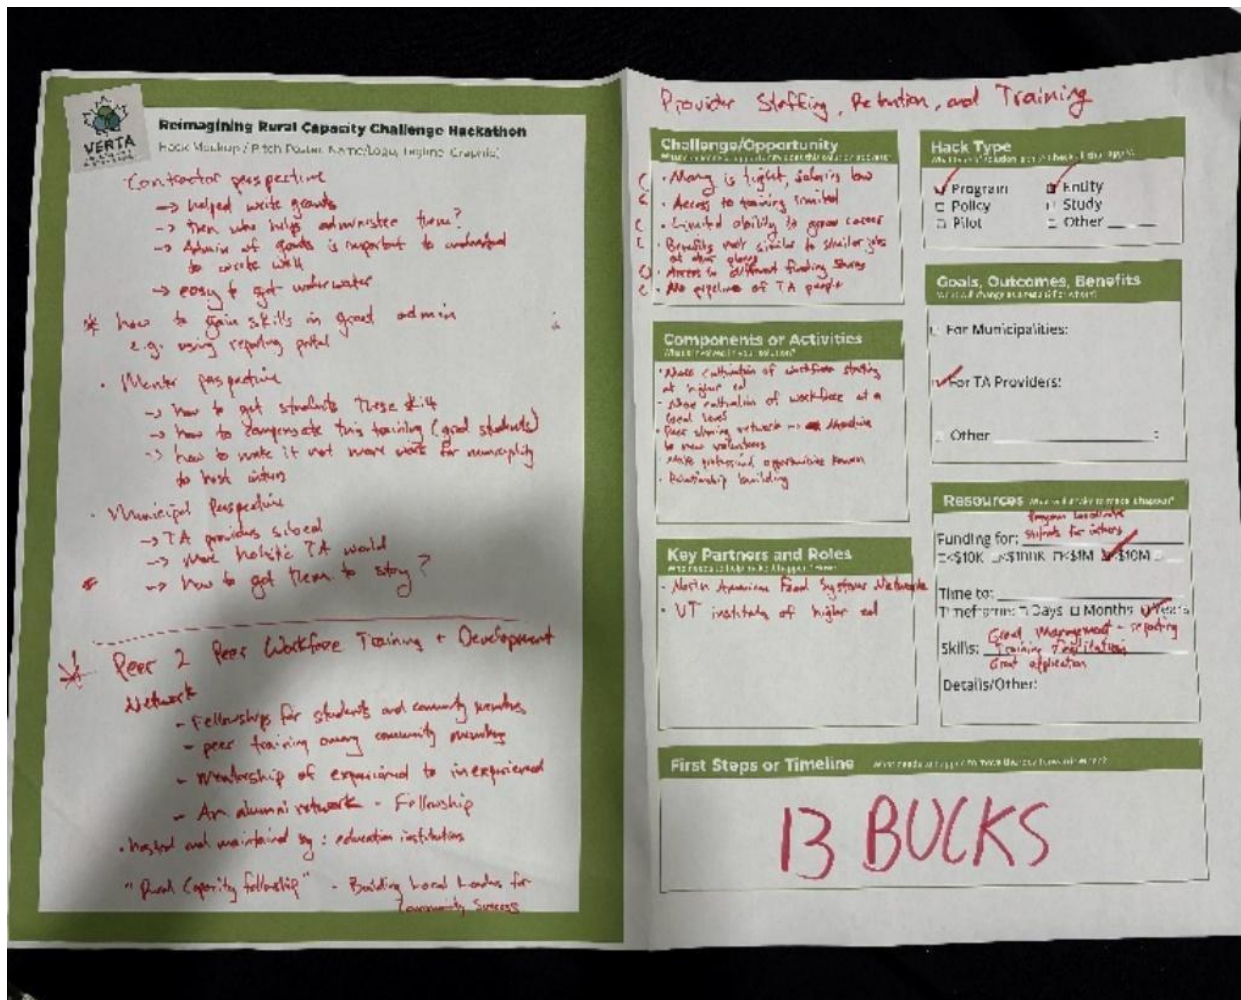 VERTA
Reimagining Rural Capacity Challenge Hackathon
Hack Mockup / Pitch Poster, Name/Logo, Tagline, Graphic)
Contractor perspective
→ helped write grants
→ then who helps administer them?
→ Admin of grants is important to understand
to write well
→ easy to get underwater
* how to gain skills in grant admin
e.g. using reporting portal
• Mentor perspective
→ how to get students these skills
→ how to compensate this training (grad students)
→ how to make it not more work for municipality
to host intern
• Municipal Perspective
→ TA providers siloed
→ more holistic TA would
* → how to get them to stay?
* Peer 2 Peer Workforce Training + Development
Network
- Fellowships for students and community members
- peer training among community members
- Mentorship of experienced to inexperienced
- An alumni network - Fellowship
• hosted and maintained by: education institutions
"Rural Capacity fellowship" - Building Local Leaders for
Community Success
Provider Staffing, Retention, and Training
Challenge/Opportunity
• Money is tight, salaries low
• Access to training limited
• Limited ability to grow career
• Benefits not similar to similar jobs
at other places
• Access to different funding
• No pipeline of TA people
Components or Activities
What is involved in your solution?
• More cultivation of workforce starting
at higher ed
• More cultivation of workforce at a
local level
• Peer sharing network →
to new volunteers
• Make professional opportunities known
• Relationship building
Key Partners and Roles
• North American Food Systems Network
• VT institute of higher ed
Hack Type
Program
Policy
Pilot
Entity
Study
Other
Goals, Outcomes, Benefits
For Municipalities:
For TA Providers:
Other
Resources
Program
Funding for: stipends for interns
<$10K <$100K <$1M <$10M
Time to:
Timeframe: Days Months Years
Grant Management - reporting
Skills: Training Facilitation
Grant application
Details/Other:
First Steps or Timeline
13 BUCKS